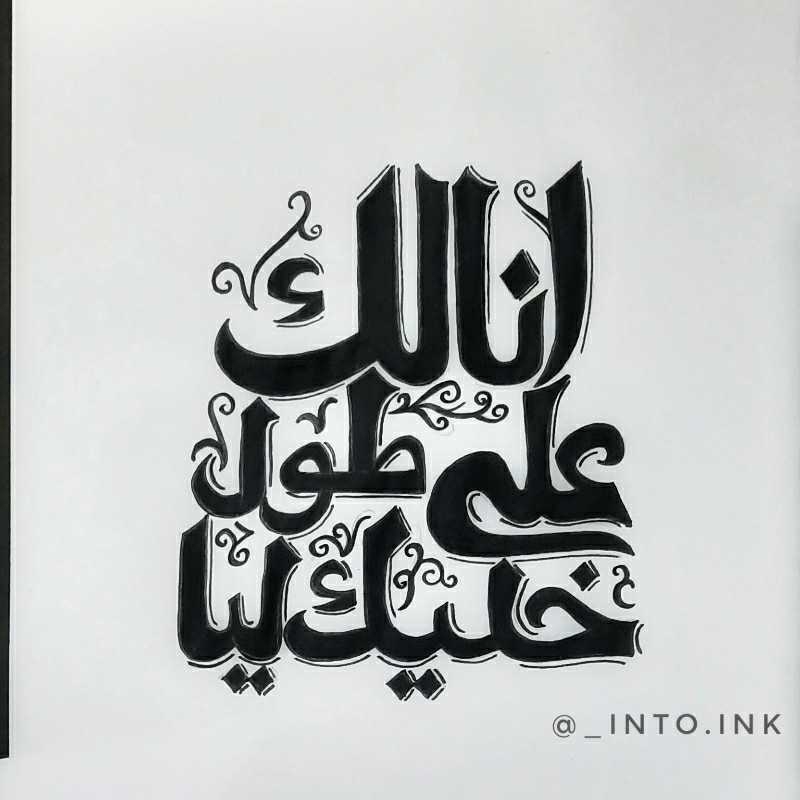 انا لك
على طول
خليك ليا
@_INTO.INK